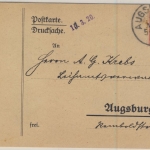 Postkarte.
Drucksache.
18.3.20.
AUGS
An
Herrn A. G. Krebs
Augsburg
frei.